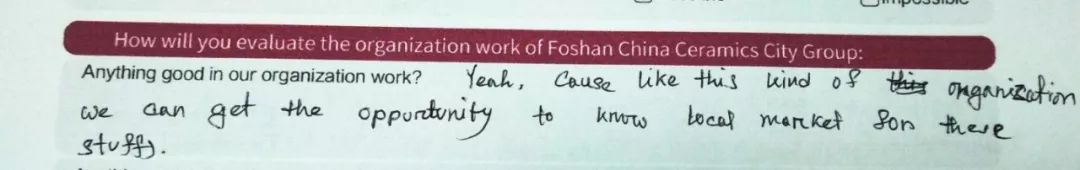 How will you evaluate the organization work of Foshan China Ceramics City Group:
Anything good in our organization work? Yeah, Cause like this kind of this organization
we can get the oppurtunity to know local market for there
stuffs.